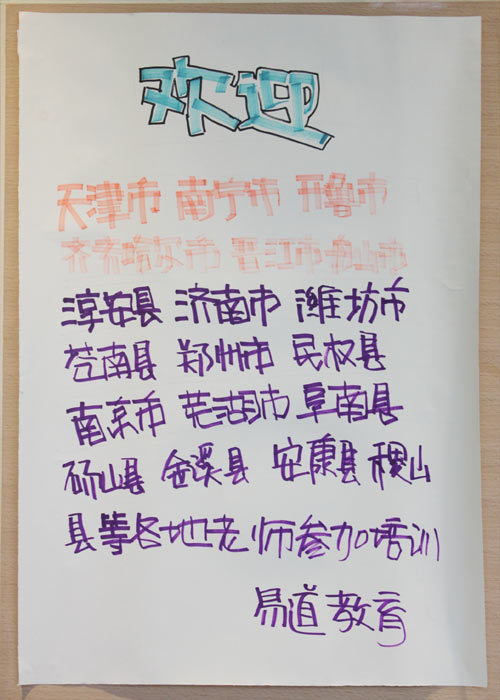 欢迎
天津市 南宁市 开鲁市
齐齐哈尔市 晋江市 舟山市
淳安县 济南市 潍坊市
苍南县 郑州市 民权县
南京市 芜湖市 阜南县
砀山县 金溪县 安康县 稷山
县等各地老师参加培训
易道教育